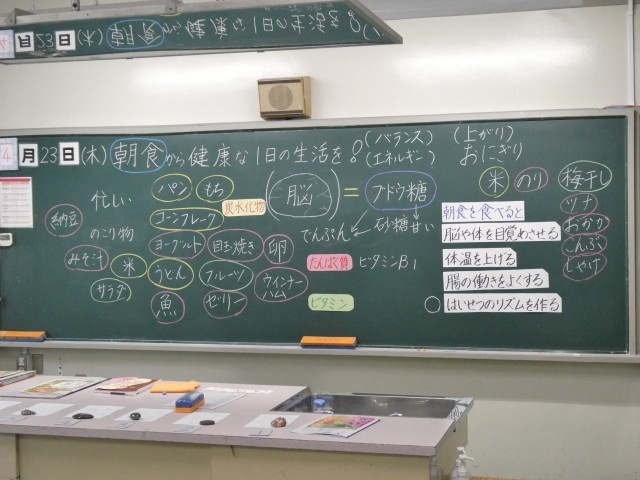 4月23日(木) 朝食から健康な1日の生活を!
(バランス) (上がり)
(エネルギー) おにぎり
忙しい パン もち 炭水化物 (脳) = ブドウ糖 米 のり 梅干し
納豆 のこり物 コーンフレーク でんぷん 砂糖甘い 朝食を食べると ツナ
脳や体を目覚めさせる おかか
みそ汁 米 ヨーグルト 目玉焼き 卵 たんぱく質 ビタミンB1 体温を上げる こんぶ
サラダ うどん フルーツ ウインナー ハム 腸の働きをよくする しゃけ
魚 ゼリー ビタミン ○ はいせつのリズムを作る